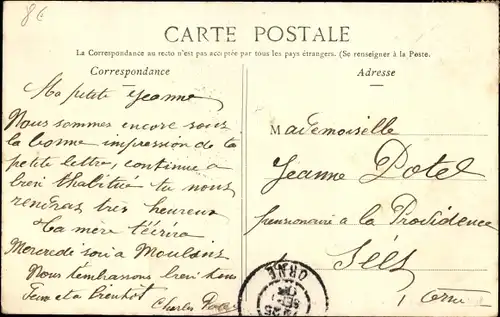 8€
CARTE POSTALE
La Correspondance au recto n'est pas acceptée par tous les pays étrangers. (Se renseigner à la Poste.
Correspondance
Adresse
Ma petite Jeanne
Nous sommes encore sous
la bonne impression de ta
petite lettre, continue à
bien t'habituer tu nous
rendras très heureux
Ta mère t'écrira
Mercredi soir à Moulins
Nous t'embrassons bien
et à bientôt
Charles
Mademoiselle
Jeanne Potel
pensionnaire à la Providence
Séez
Orne
ORNE